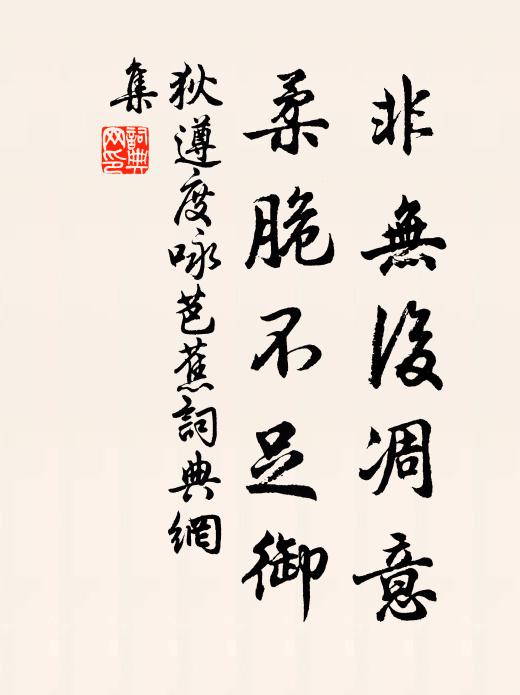 非無後凋意
柔脆不足御
狄遵度咏芭蕉詞典網
集
詞典网印